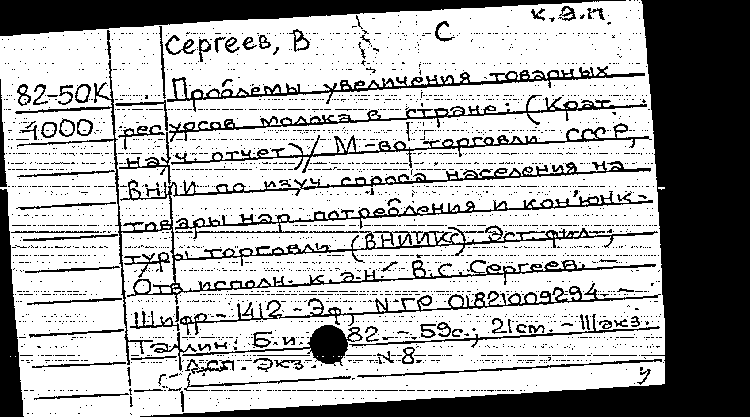 к.э.н.
Сергеев, В С
82-50К Проблемы увеличения товарных
4000 ресурсов молока в стране: (Крат.
науч. отчет) / М-во торговли СССР,
ВНИИ по изуч. спроса населения на
товары нар. потребления и кон'юнк-
туры торговли (ВНИИКС), Эст. фил-;
Отв исполн. к.э.н. В.С. Сергеев. -
Шифр - 1412 - Эф; N ГР 01821009294. -
Таллин: Б.и. 82. - 59с.; 21см. - 111экз.
Дсп. Экз. N 8.